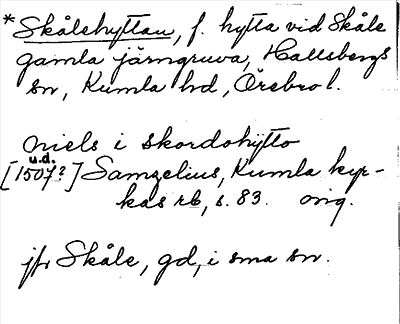 * Skålehyttan, f. hytta vid Skåle
gamla järngruva, Hallsbergs
sn, Kumla hd, Örebro l.
niels i skordohytto
u.d.
[1507?] Samzelius, Kumla kyr-
kas rb, s. 83. orig.
jfr Skåle, gd, i sma sn.